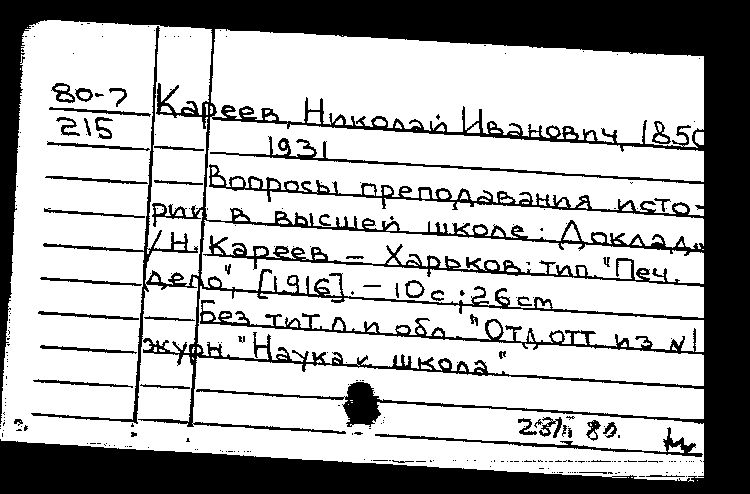 80-7 Кареев, Николай Иванович, 1850
215
1931
Вопросы преподавания исто-
рии в высшей школе: Доклад..
/ Н. Кареев. - Харьков: тип. "Печ.
дело", [1916]. - 10 с.; 26 cm
Без тит. л. и обл. "Отд. отт. из №1
журн. "Наука и школа".
28/II 80.